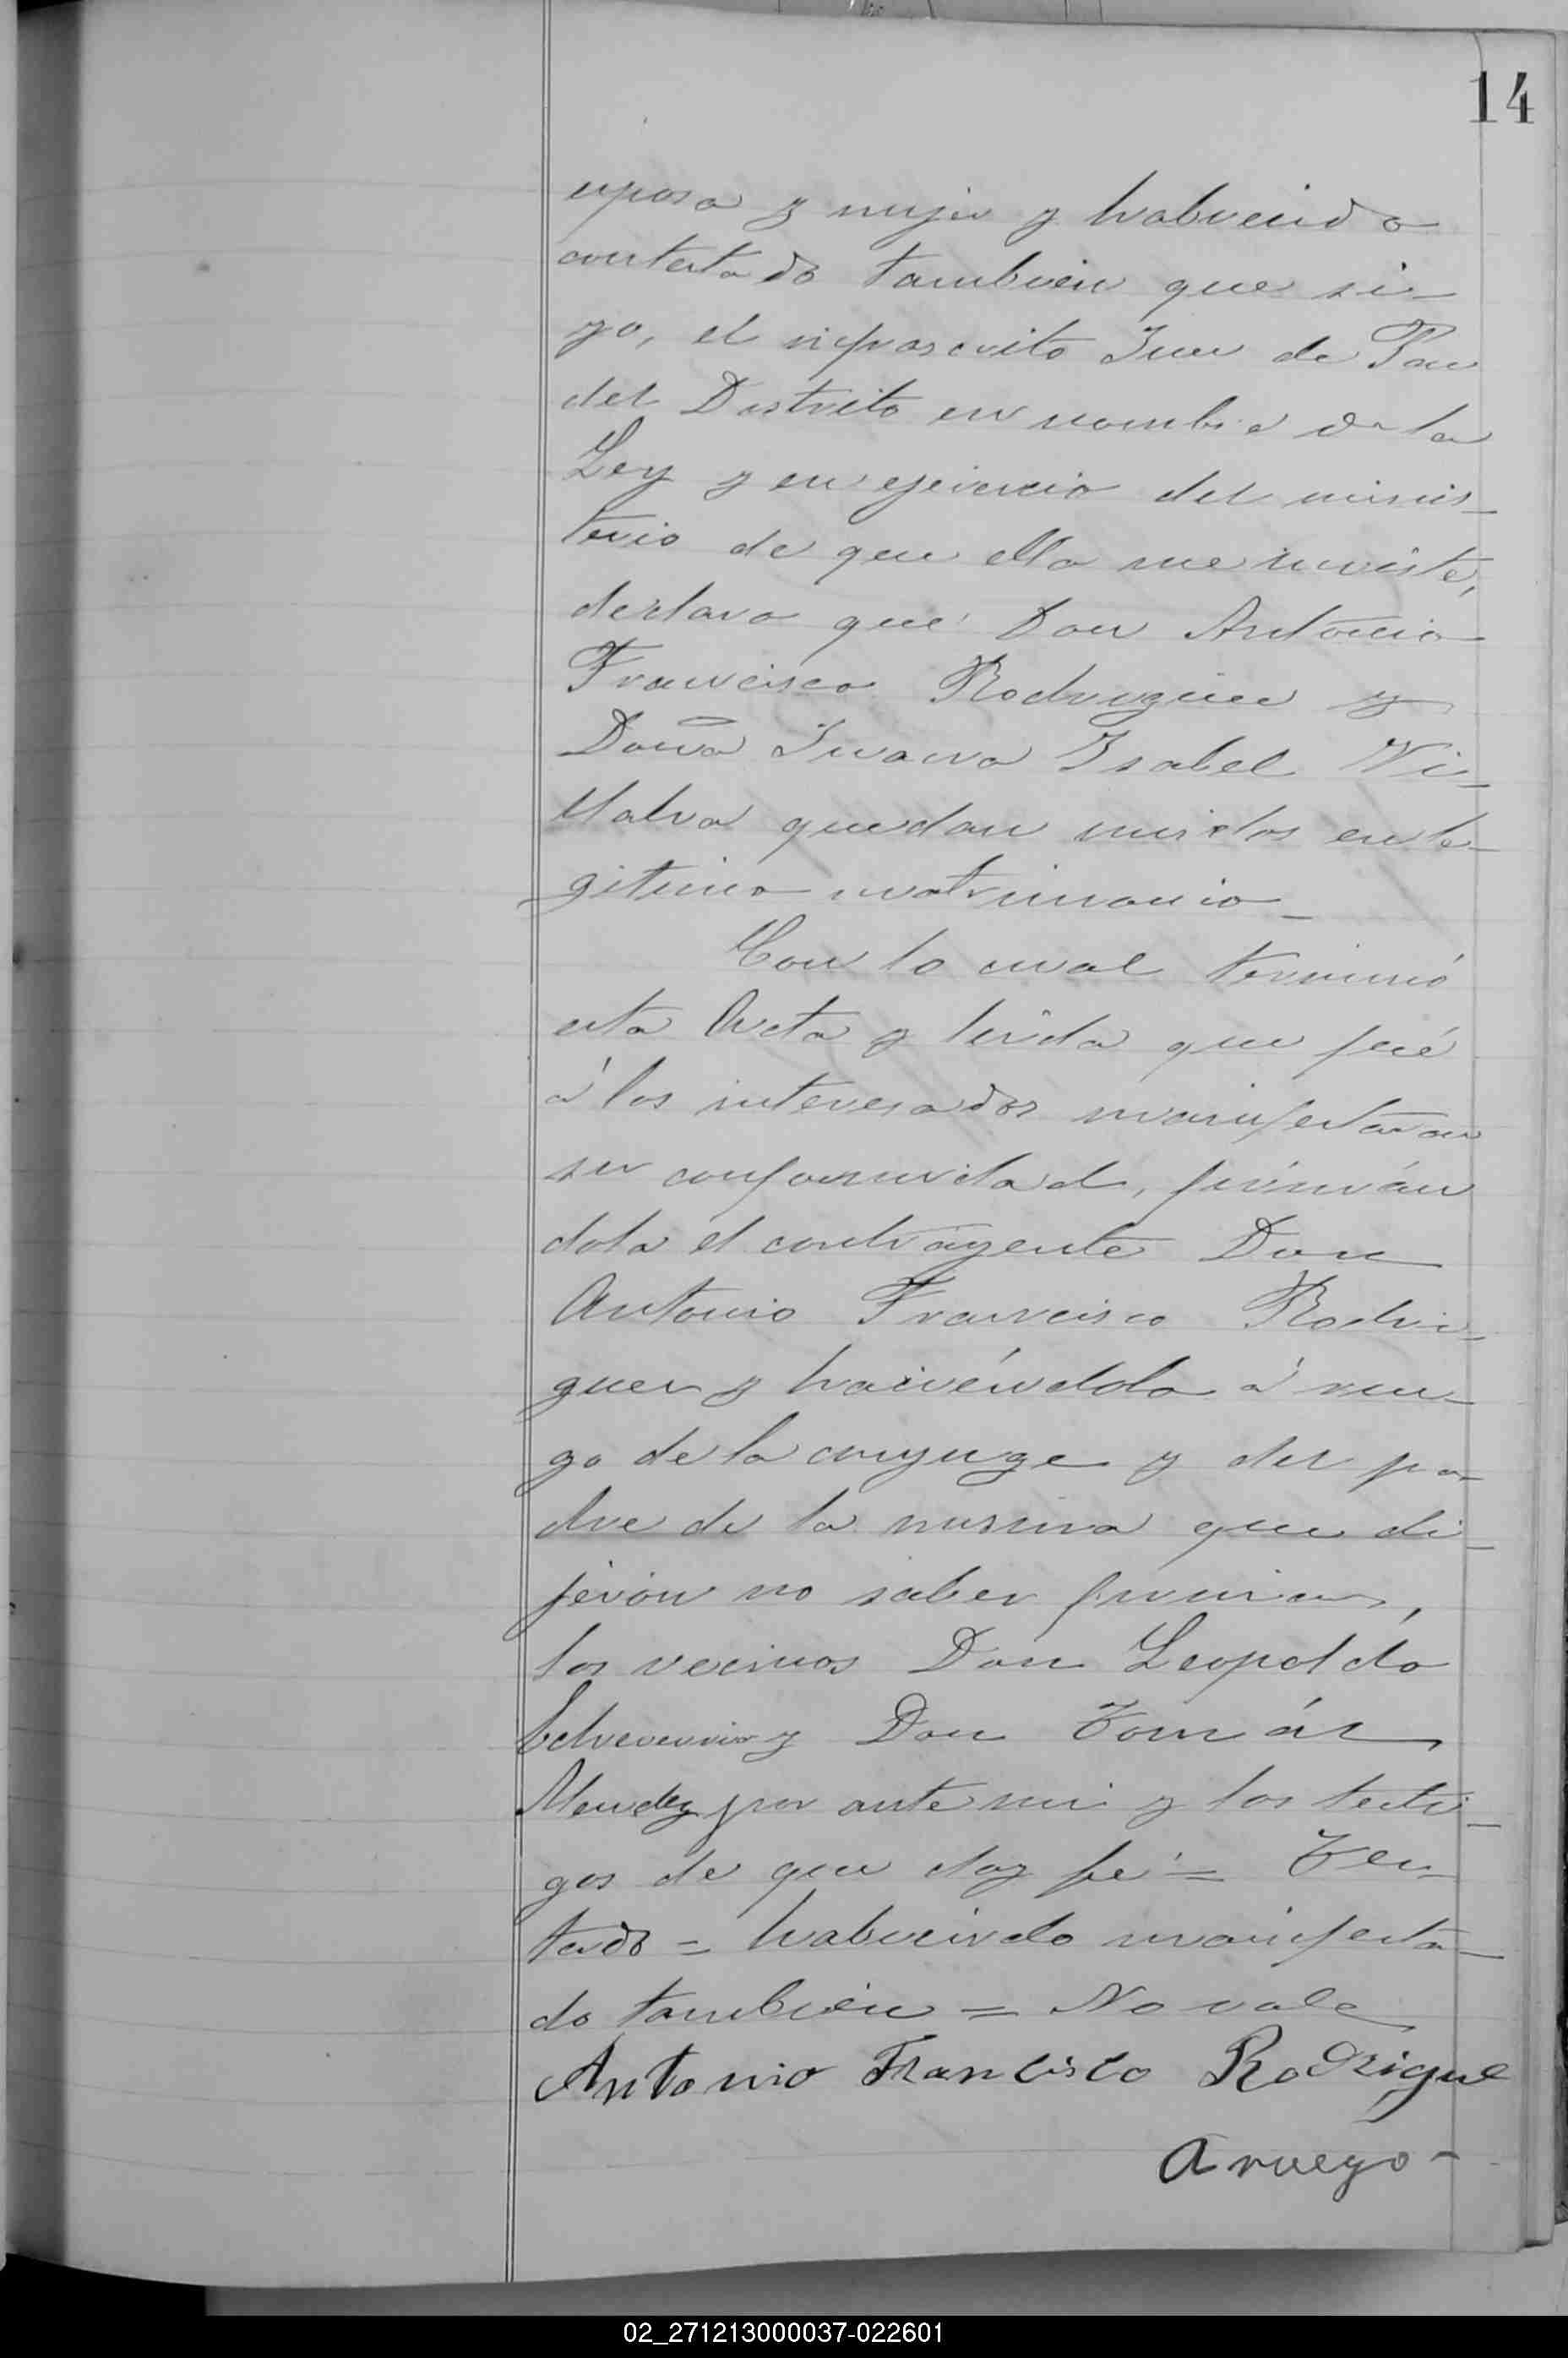 14
esposa y mujer y habiendo
contestado tambien que si
yo, el infrascrito Juez de Paz
del Distrito en nombre de la
Ley y en ejercicio del minis-
terio de que ella me inviste,
declaro que Don Antonio
Francisco Rodriguez y
Doña Juana Isabel Vi-
llalva quedan unidos en le-
gitimo matrimonio_
Con lo cual terminó
esta Acta y leida que fué
á los interesados manifestaron
su conformidad, firmán
dola el contrayente Don
Antonio Francisco Rodri-
guez y haciéndola á rue-
go de la conyuge y del pa-
dre de la misma que di-
jeron no saber firmar,
los vecinos Don Leopoldo
y Don Tomás
Mendez por ante mi y los testi-
gos de que doy fé = Tes-
tado = habiendo manifesta-
do tambien = No vale
Antonio Francisco Rodrigue
A ruego -
02_271213000037-022601